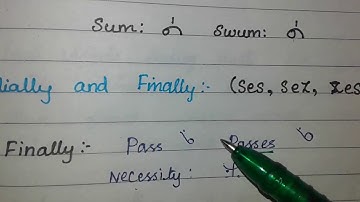 Sum: Swum:
ially and Finally:- (Ses, Sez, Zes
Finally:- Pass Passes
Necessity: